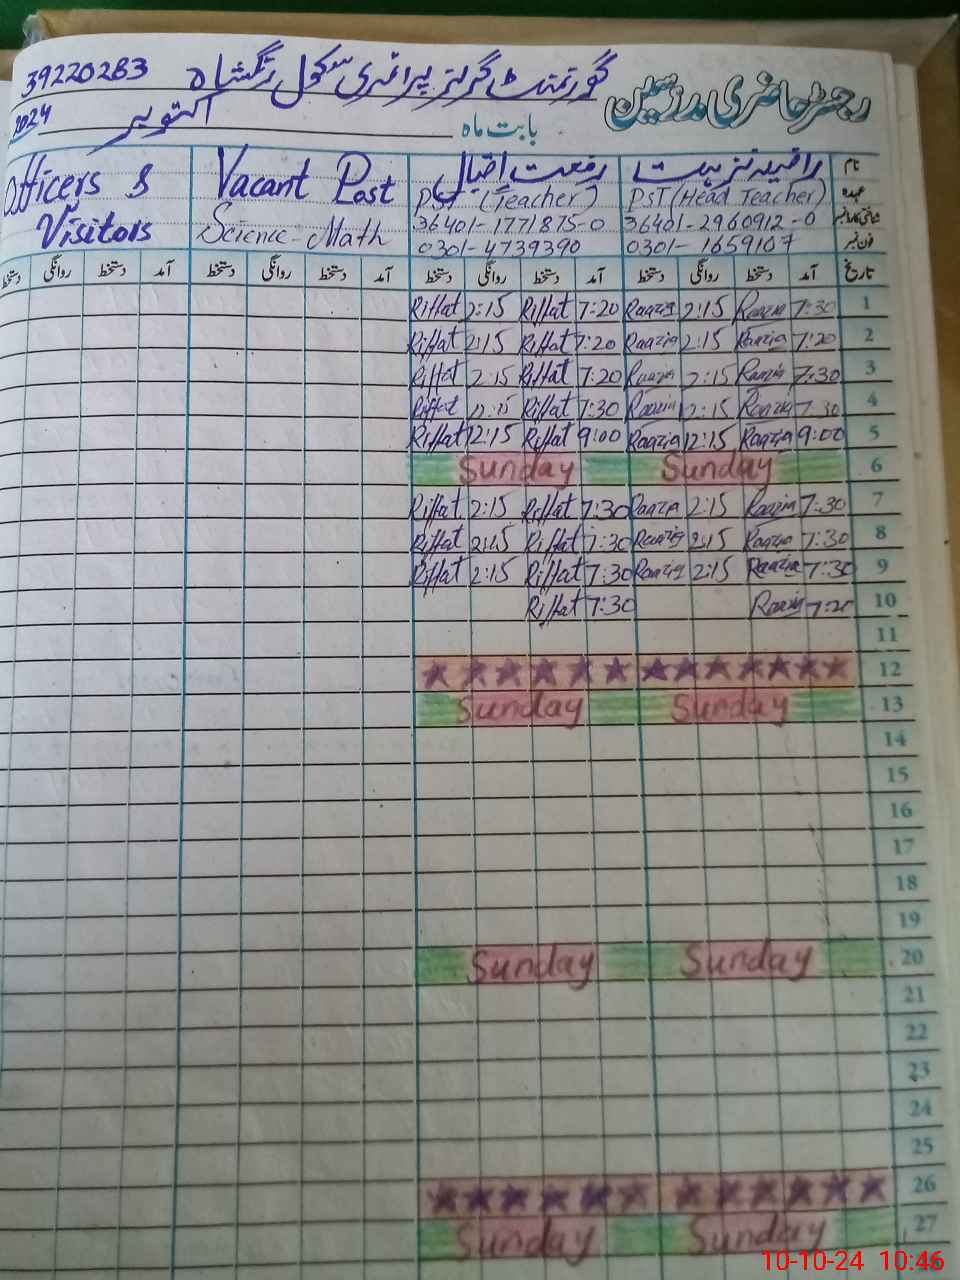 رجسٹر حاضری مدرسین گورنمنٹ گرلز پرائمری سکول رنگشاہ 39220283
بابت ماہ اکتوبر 2024
نام راضیہ نزہت رفعت اقبال Vacant Post Officers & Visitors
عہدہ PST (Head Teacher) PST (Teacher) Science-Math
شناختی کارڈ نمبر 36401-2960912-0 36401-1771875-0
فون نمبر 0301-1659167 0301-4739390
تاریخ آمد دستخط روانگی دستخط آمد دستخط روانگی دستخط آمد دستخط روانگی دستخط آمد دستخط روانگی دستخط
1 7:30 Raazia 2:15 Raazia 7:20 Riffat 2:15 Riffat
2 7:20 Raazia 2:15 Raazia 7:20 Riffat 2:15 Riffat
3 7:30 Raazia 2:15 Raazia 7:20 Riffat 2:15 Riffat
4 7:30 Raazia 12:15 Raazia 7:30 Riffat 12:15 Riffat
5 9:00 Raazia 12:15 Raazia 9:00 Riffat 12:15 Riffat
6 Sunday Sunday
7 7:30 Raazia 2:15 Raazia 7:30 Riffat 2:15 Riffat
8 7:30 Raazia 2:15 Raazia 7:30 Riffat 2:15 Riffat
9 7:30 Raazia 2:15 Raazia 7:30 Riffat 2:15 Riffat
10 7:20 Raazia 7:30 Riffat
11
12
13 Sunday Sunday
14
15
16
17
18
19
20 Sunday Sunday
21
22
23
24
25
26
27 Sunday Sunday
10-10-24 10:46